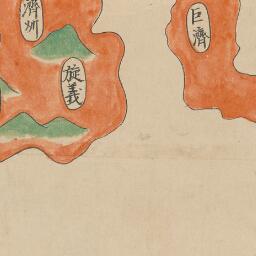 濟州
旌義
巨濟